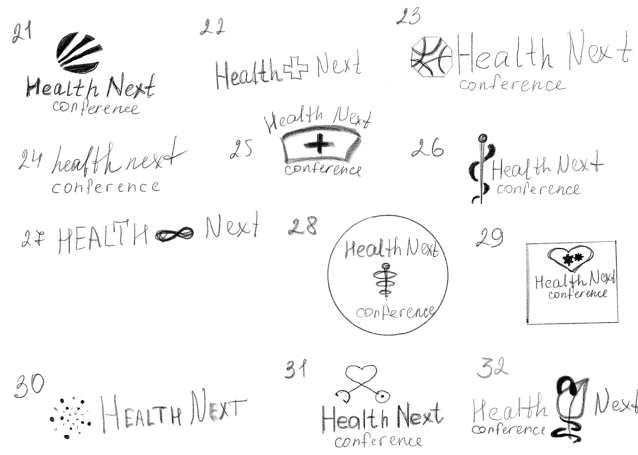 21
Health Next
conference
22
Health Next
23
Health Next
conference
24
health next
conference
25
Health Next
conference
26
Health Next
conference
27
HEALTH Next
28
Health Next
conference
29
Health Next
conference
30
HEALTH NEXT
31
Health Next
conference
32
Health Next
conference